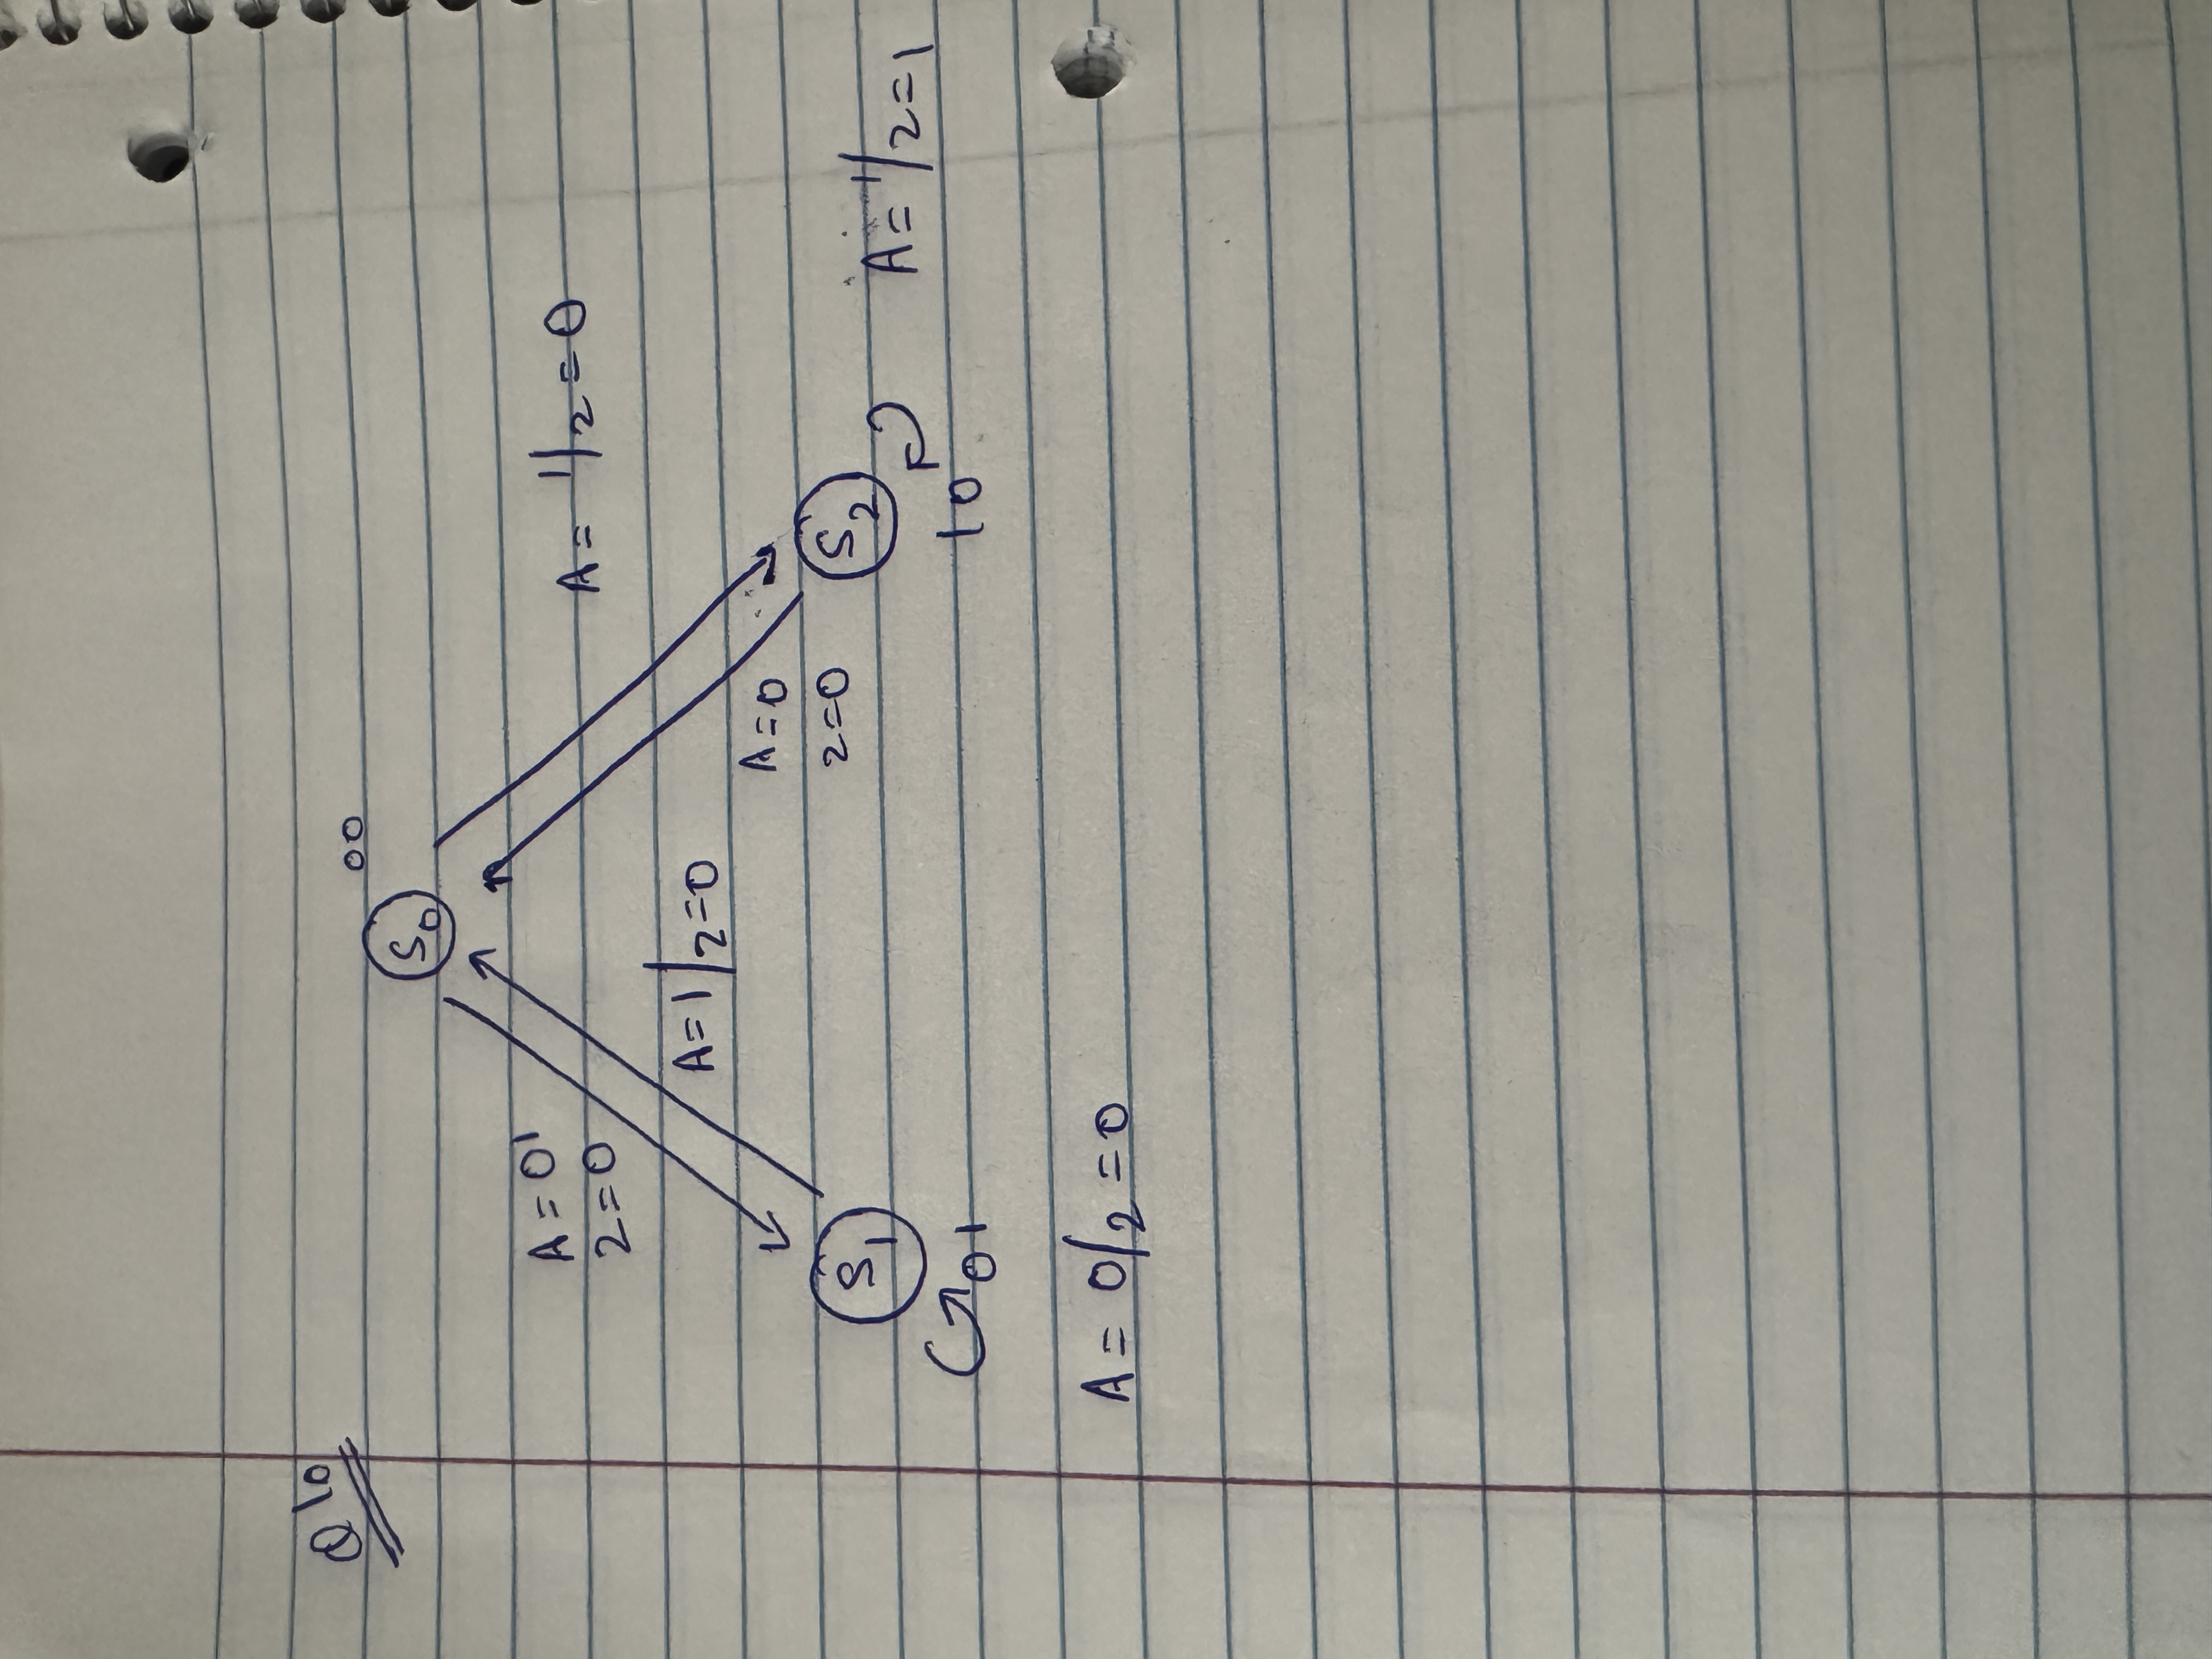 Q10
00
S0
A=0'
2=0
A= 1/2=0
A=1/2=0
A=0
2=0
S1
S2
A= 1/2=1
01
10
A= 0/2=0